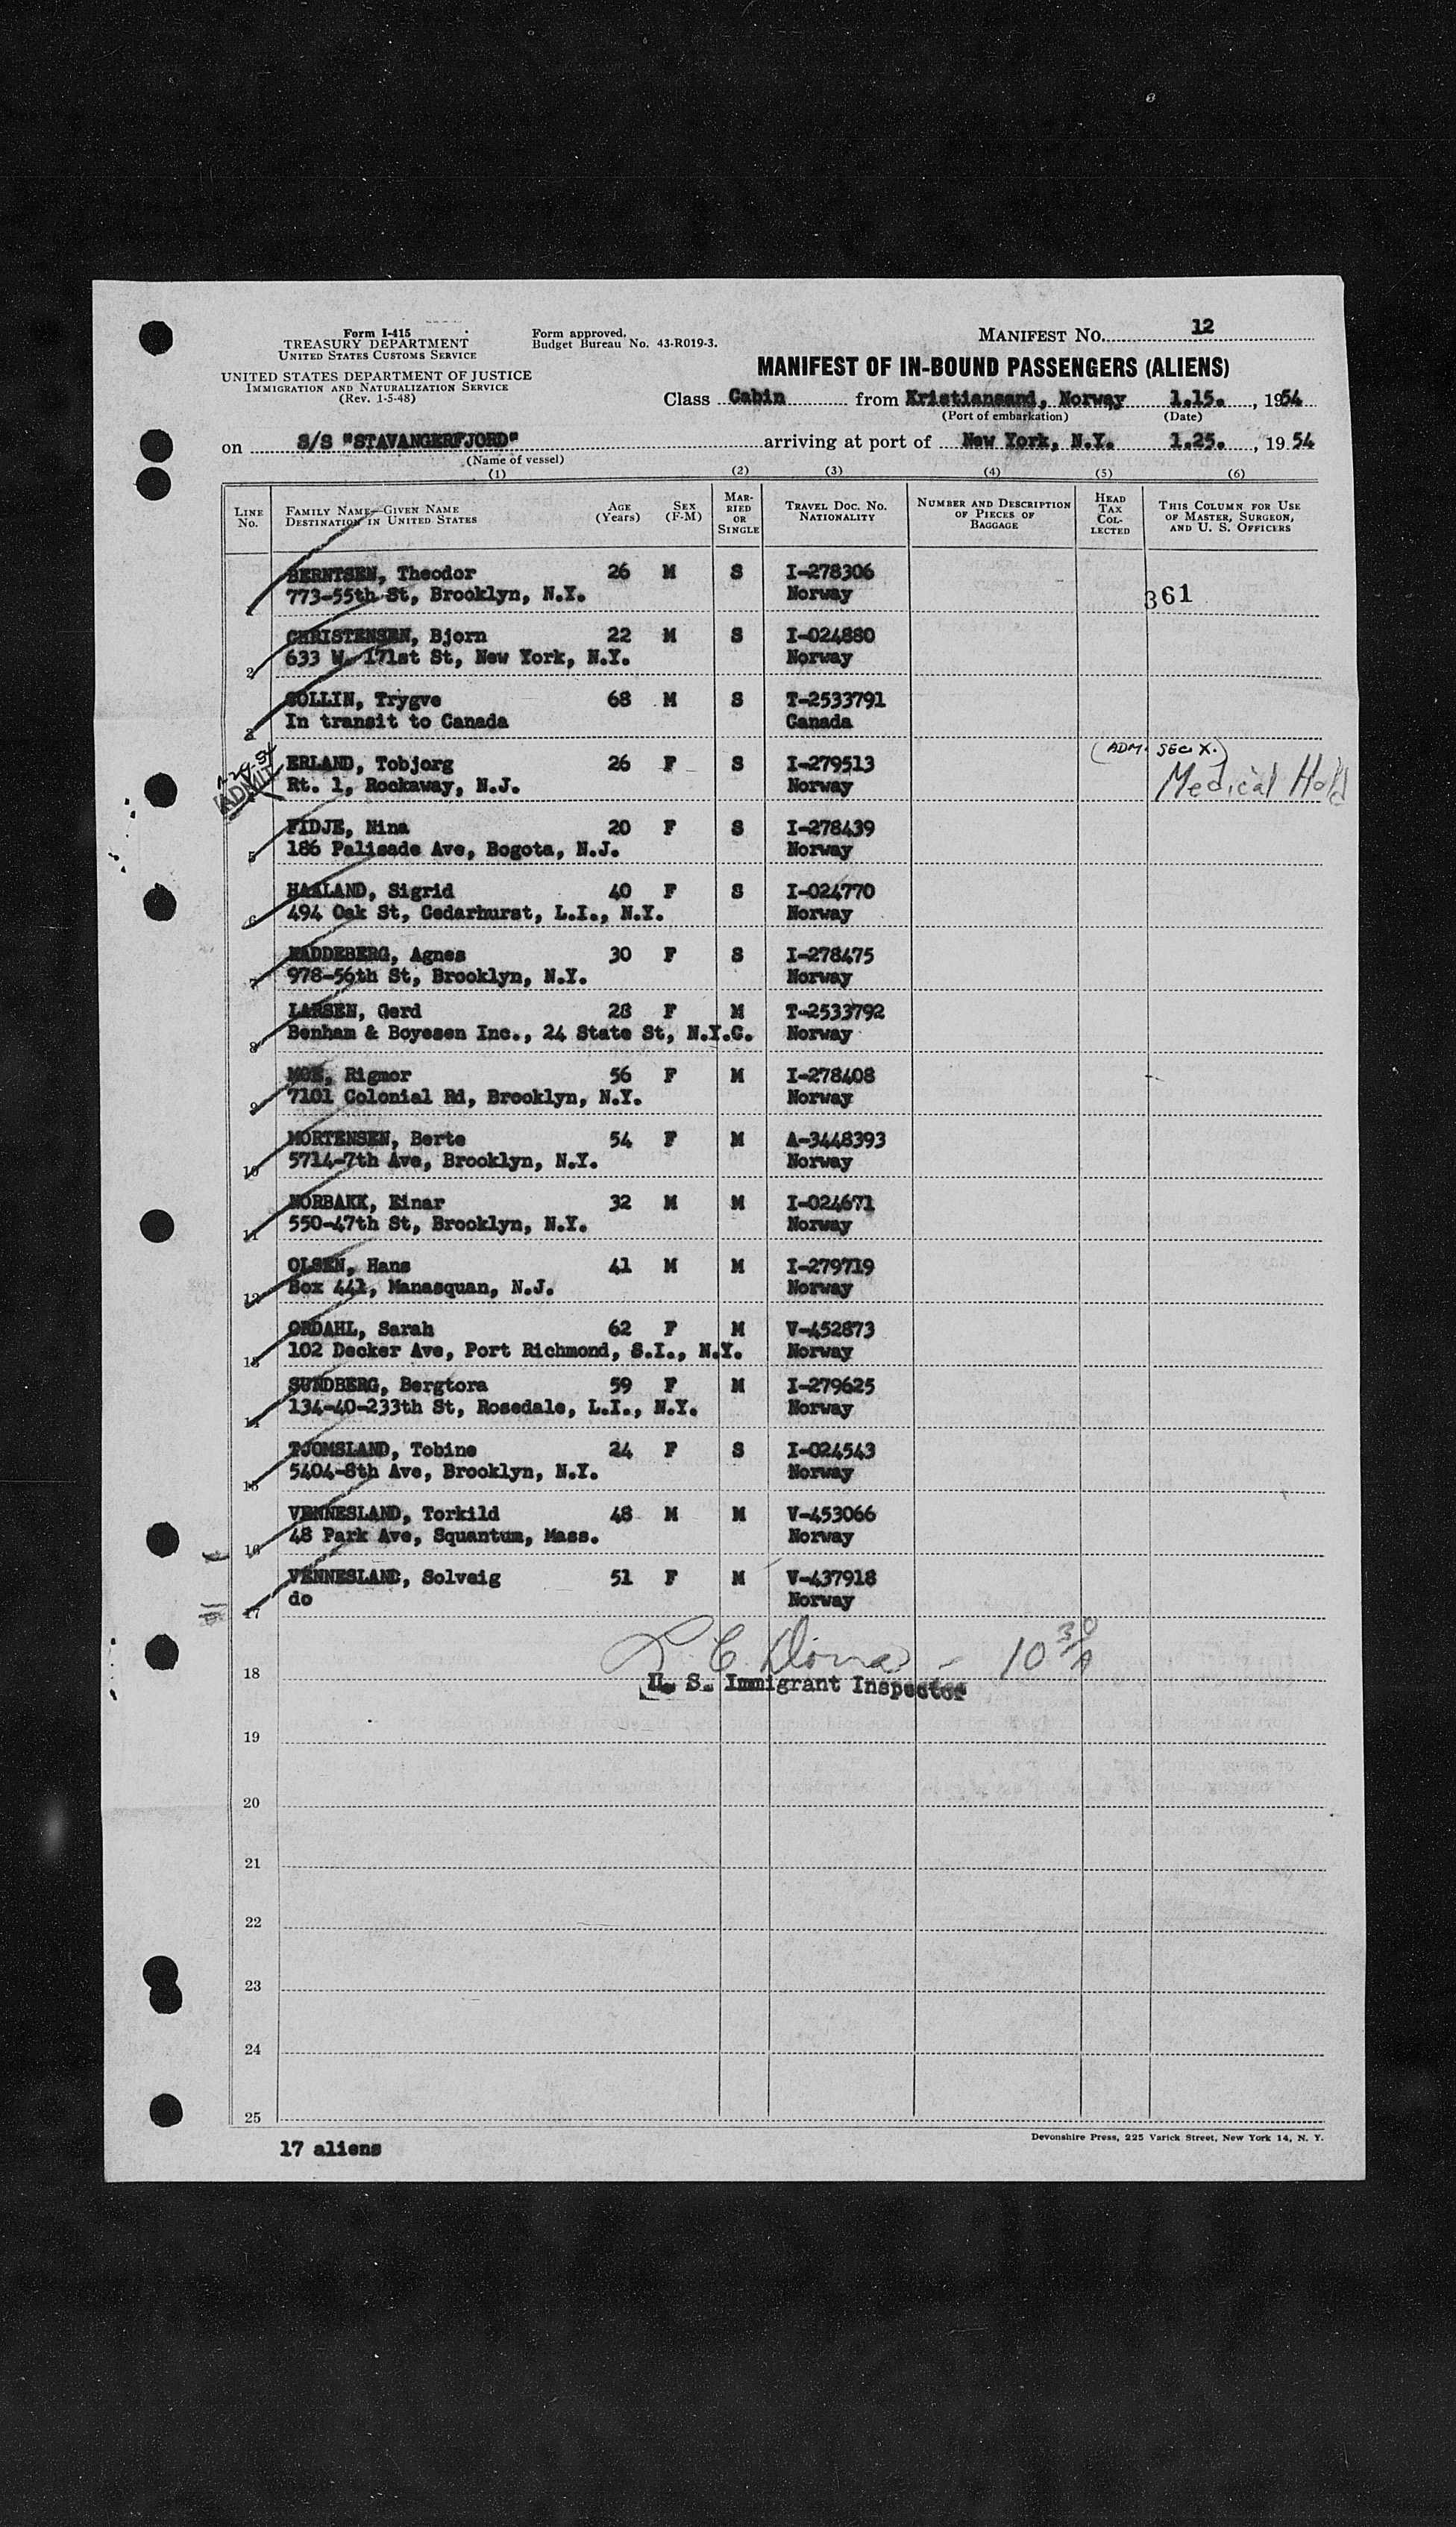 Form I-415
TREASURY DEPARTMENT
UNITED STATES CUSTOMS SERVICE
UNITED STATES DEPARTMENT OF JUSTICE
IMMIGRATION AND NATURALIZATION SERVICE
(Rev. 1-5-48)
Form approved.
Budget Bureau No. 43-R019-3.
MANIFEST No. 12
MANIFEST OF IN-BOUND PASSENGERS (ALIENS)
Class Cabin from Kristiansand, Norway 1.15., 1954
(Port of embarkation) (Date)
on S/S "STAVANGERFJORD" arriving at port of New York, N.Y. 1.25., 1954
(Name of vessel)
(1) (2) (3) (4) (5) (6)
LINE No.
FAMILY NAME—GIVEN NAME
DESTINATION IN UNITED STATES
AGE (Years)
SEX (F-M)
MARRIED OR SINGLE
TRAVEL DOC. No.
NATIONALITY
NUMBER AND DESCRIPTION OF PIECES OF BAGGAGE
HEAD TAX COLLECTED
THIS COLUMN FOR USE OF MASTER, SURGEON, AND U. S. OFFICERS
1 BERNTSEN, Theodor 26 M S I-278306
773-55th St, Brooklyn, N.Y. Norway 361
2 CHRISTENSEN, Bjorn 22 M S I-024880
633 W. 171st St, New York, N.Y. Norway
3 COLLIN, Trygve 68 M S T-2533791
In transit to Canada Canada
ADMIT
ERLAND, Tobjorg 26 F S I-279513 (ADM. SEC X.)
Rt. 1, Rockaway, N.J. Norway Medical Hold
5 FIDJE, Nina 20 F S I-278439
186 Palisade Ave, Bogota, N.J. Norway
6 HAALAND, Sigrid 40 F S I-024770
494 Oak St, Cedarhurst, L.I., N.Y. Norway
7 HADDEBERG, Agnes 30 F S I-278475
978-56th St, Brooklyn, N.Y. Norway
8 LARSEN, Gerd 28 F M T-2533792
Benham & Boyesen Inc., 24 State St, N.Y.C. Norway
9 MOE, Rigmor 56 F M I-278408
7101 Colonial Rd, Brooklyn, N.Y. Norway
10 MORTENSEN, Berte 54 F M A-3448393
5714-7th Ave, Brooklyn, N.Y. Norway
11 NORBAKK, Einar 32 M M I-024671
550-47th St, Brooklyn, N.Y. Norway
12 OLSEN, Hans 41 M M I-279719
Box 441, Manasquan, N.J. Norway
13 ORDAHL, Sarah 62 F M V-452873
102 Decker Ave, Port Richmond, S.I., N.Y. Norway
14 SUNDBERG, Bergtora 59 F M I-279625
134-40-233th St, Rosedale, L.I., N.Y. Norway
15 TJOMSLAND, Tobine 24 F S I-024543
5404-8th Ave, Brooklyn, N.Y. Norway
16 VENNESLAND, Torkild 48 M M V-453066
48 Park Ave, Squantum, Mass. Norway
17 VENNESLAND, Solveig 51 F M V-437918
do Norway
18 10 30 A
U. S. Immigrant Inspector
19
20
21
22
23
24
25
17 aliens
Devonshire Press, 225 Varick Street, New York 14, N. Y.